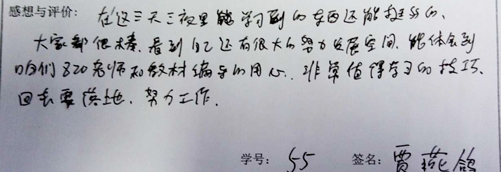 感想与评价: 在这三天三夜里能学习到的东西还能挺多的.
大家都很棒、看到自己还有很大的努力发展空间. 能体会到
咱们820老师和教材编导的用心. 非常值得学习的技巧.
回去要落地. 努力工作.
学号: 55 签名: 贾燕鸽